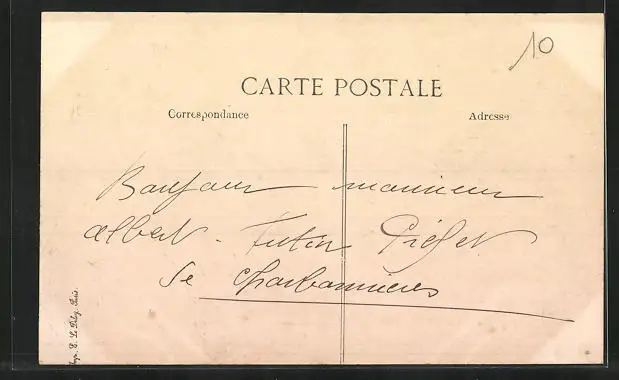 10
CARTE POSTALE
Correspondance Adresse
Bonjour monsieur
albert. Futur Préfet
de Charbonnières
Imp. E. Le Deley, Paris.